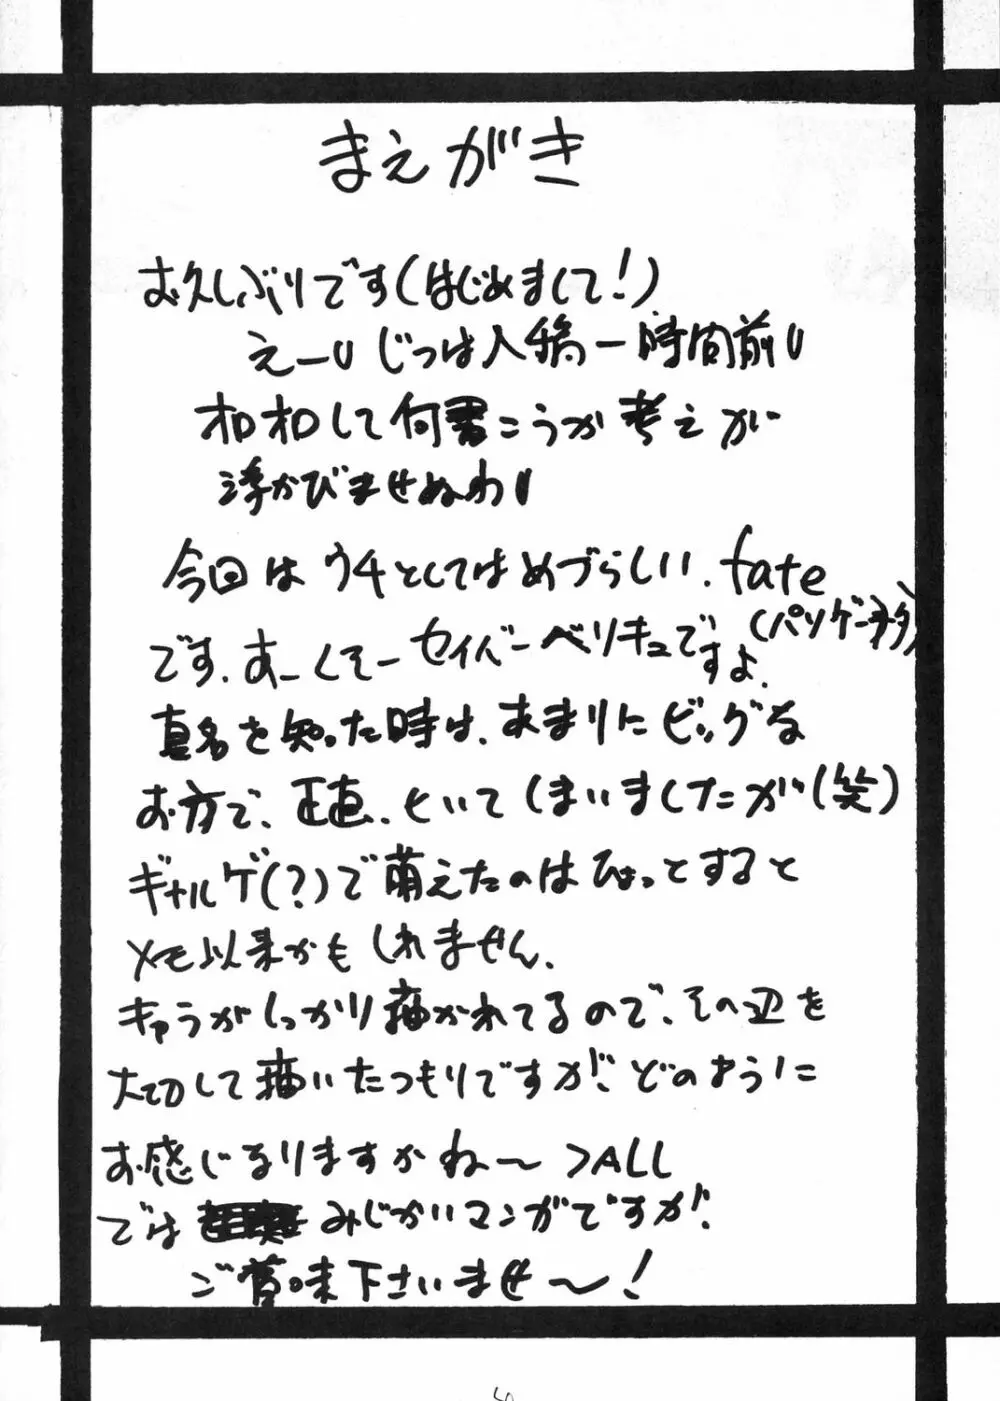 まえがき
お久しぶりです(はじめまして!)
えーU じつは入稿一時間前U
オロオロして何書こうか考えが
浮かびませぬわU
今回はウチとしてはめづらしい、fate
です。あーくそーセイバーベリキューですよ。(パソゲー
真名を知った時は、あまりにビッグな
お方で、正直、ていてしまいましたが(笑)
ギャルゲ(?)で萌えたのはひょっとすると
メモ以来かもしれません。
キャラがしっかり描かれてるので、その辺を
大切して描いたつもりですが、どのように
お感じなりますかね〜 >ALL
では みじかいマンガですが、
ご賞味下さいませ〜!